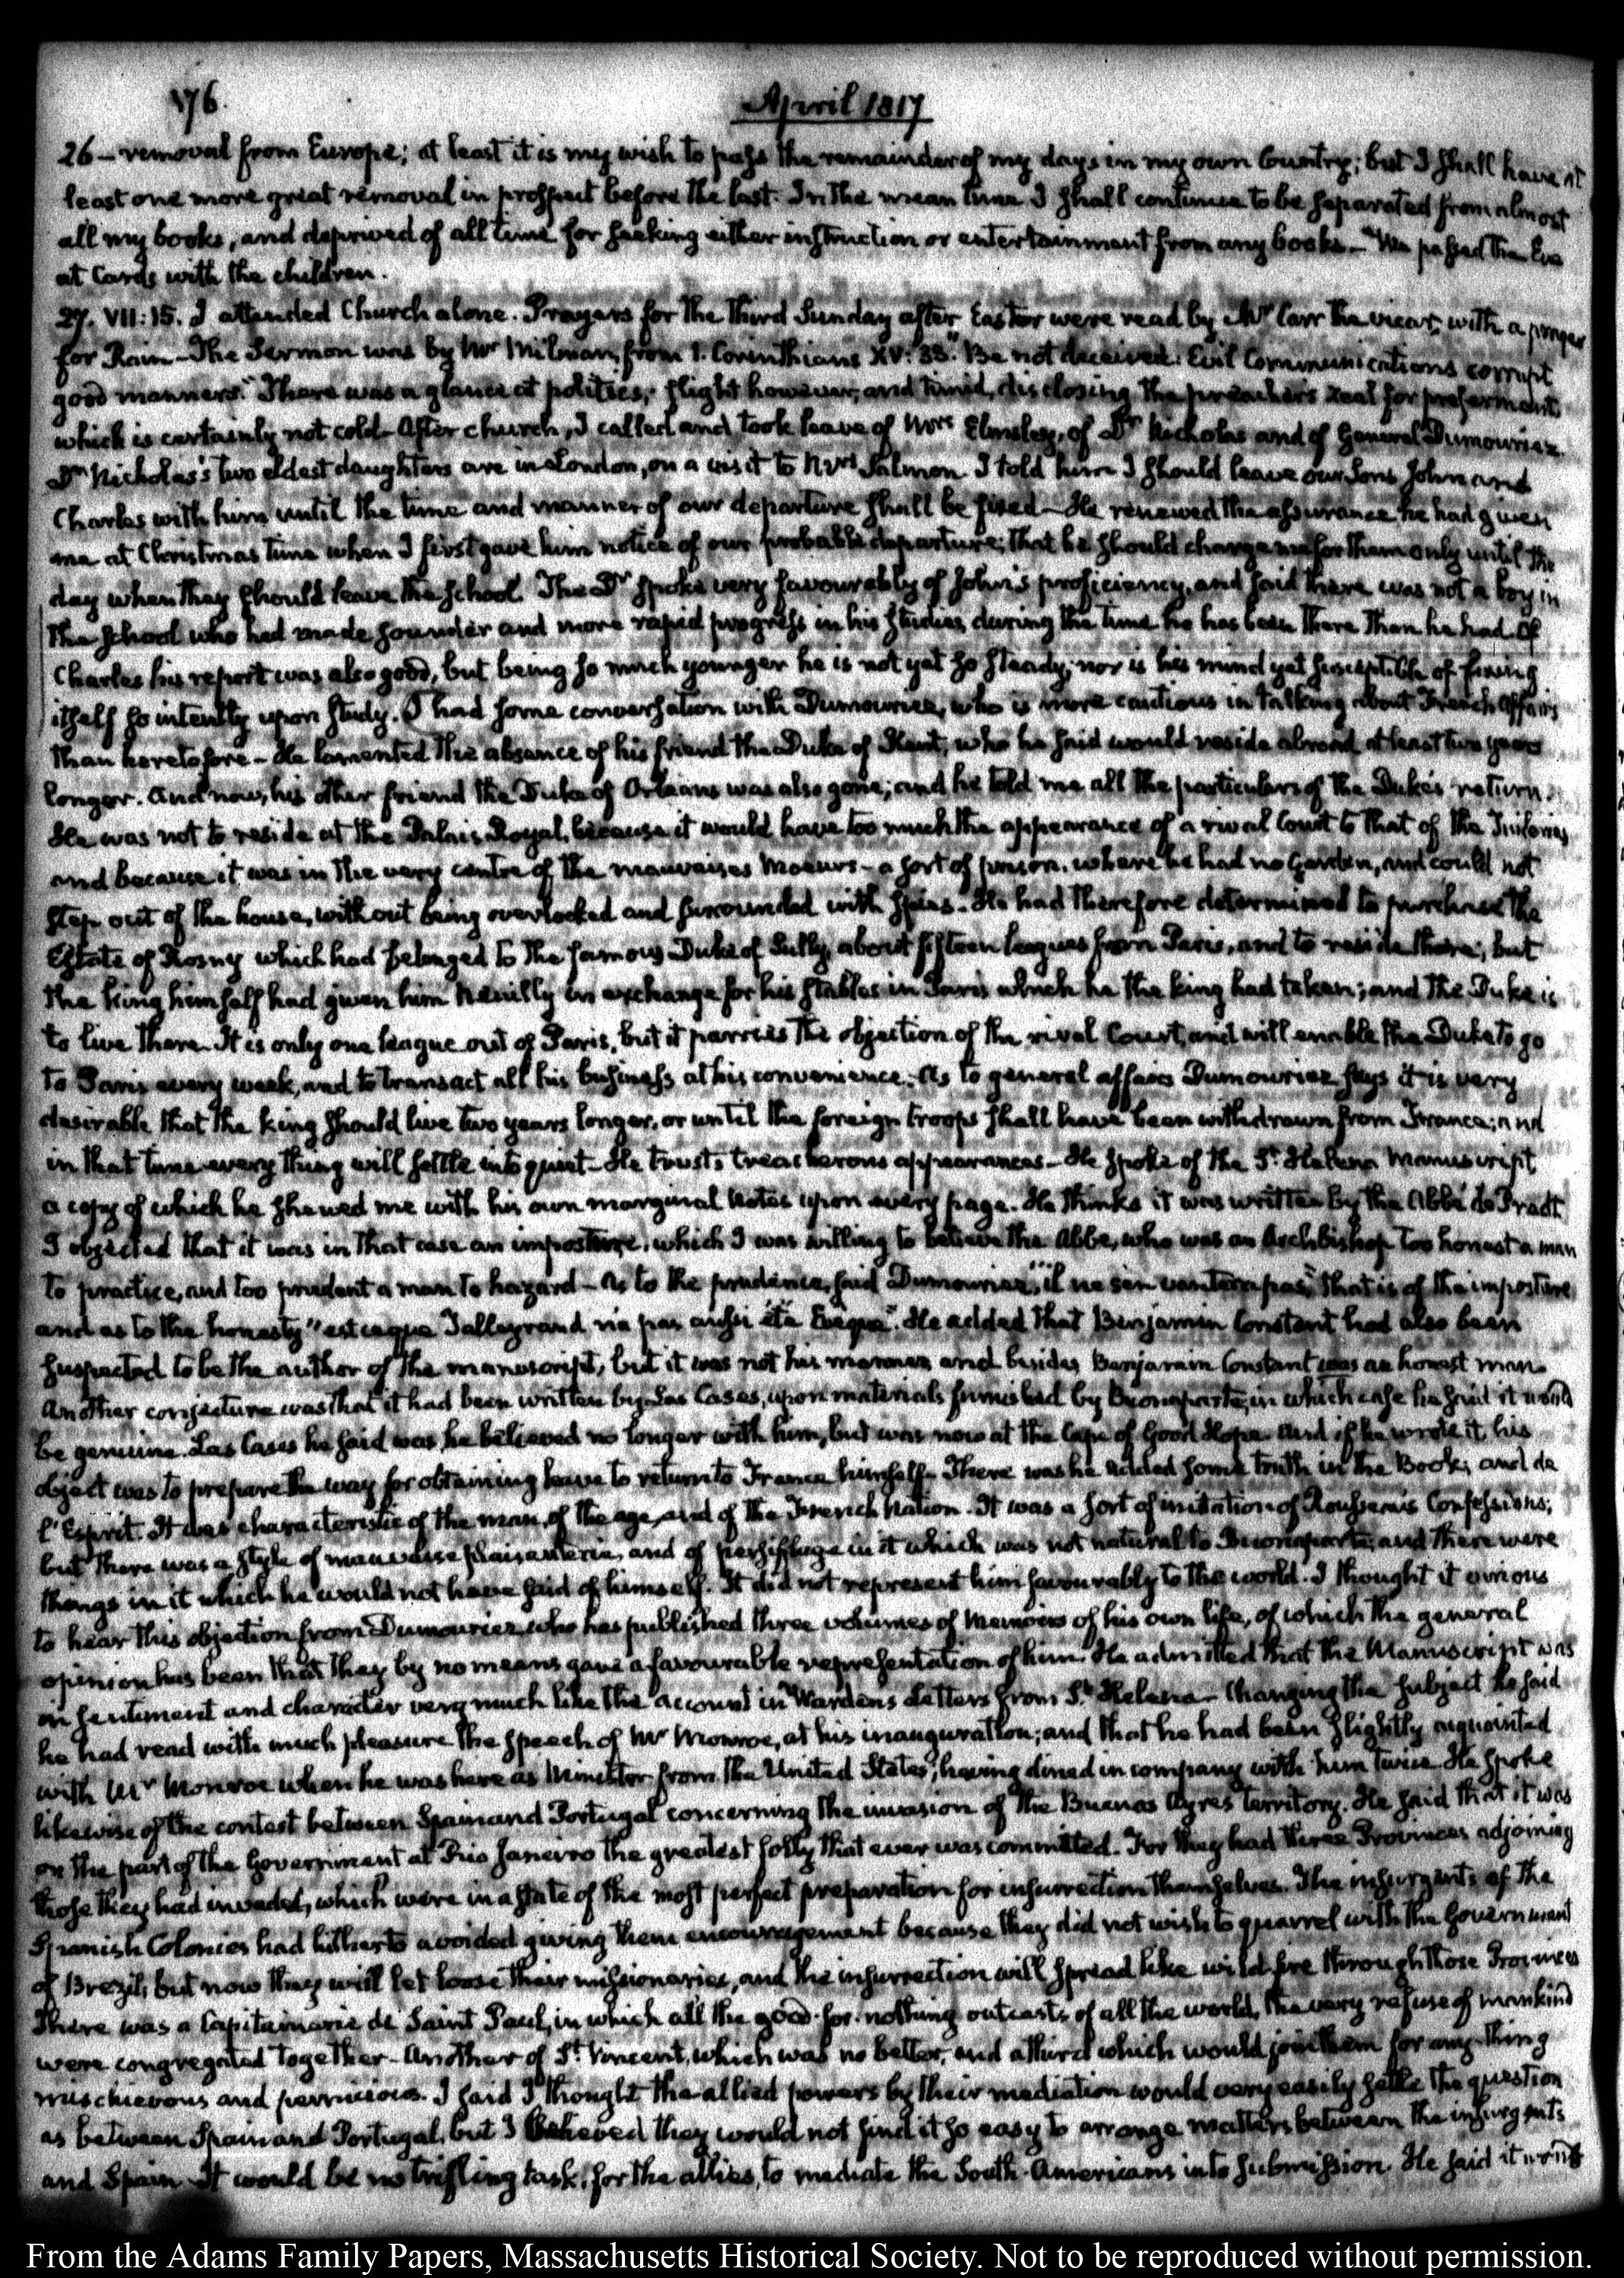 176.
April 1817
26 – removal from Europe; at least it is my wish to pass the remainder of my days in my own Country; but I shall have at
least one more great removal in prospect before the last. In the mean time I shall continue to be separated from almost
all my books, and deprived of all time for seeking either instruction or entertainment from any books. – We passed the Eve
at Cards with the children.
27. VII:15. I attended Church alone. Prayers for the third Sunday after Easter were read by Mr Carr the vicar, with a prayer
for Rain – The Sermon was by Mr Milman, from 1. Corinthians XV: 33. "Be not deceived: Evil Communications corrupt
good manners." There was a glance at politics; slight however, and timid, disclosing the preacher's zeal for preferment,
which is certainly not cold. After church, I called and took leave of Mrs Elmsley, of Dr Nicholas and of General Dumouriez.
Dr Nicholas's two eldest daughters are in London, on a visit to Mrs Salmon. I told him I should leave our Sons John and
Charles with him until the time and manner of our departure shall be fixed – He renewed the assurance he had given
me at Christmas time when I first gave him notice of our probable departure; that he should charge me for them only until the
day when they should leave the school. The Dr spoke very favourably of John's proficiency, and said there was not a boy in
the school who had made sounder and more rapid progress in his studies during the time he has been there than he had. Of
Charles his report was also good, but being so much younger he is not yet so steady; nor is his mind yet susceptible of fixing
itself so intently upon study. I had some conversation with Dumouriez, who is more cautious in talking about French Affairs
than heretofore – He lamented the absence of his friend the Duke of Kent, who he said would reside abroad at least two years
longer. And now, his other friend the Duke of Orleans was also gone; and he told me all the particulars of the Duke's return.
He was not to reside at the Palais Royal, because it would have too much the appearance of a rival Court to that of the Tuileries
and because it was in the very centre of the mauvaises moeurs – a sort of prison, where he had no Garden, and could not
step out of the house, without being overlooked and surrounded with spies. He had therefore determined to purchase the
Estate of Rosny which had belonged to the famous Duke of Sully, about fifteen leagues from Paris, and to reside there; but
the king himself had given him Neuilly in exchange for his stables in Paris which he the king had taken; and the Duke is
to live there. It is only one league out of Paris, but it parries the objection of the rival Court, and will enable the Duke to go
to Paris every week, and to transact all his business at his convenience. As to general affairs Dumouriez says it is very
desirable that the king should live two years longer, or until the foreign troops shall have been withdrawn from France; and
in that time every thing will settle into quiet – He trusts treacherous appearances – He spoke of the St. Helena Manuscript
a copy of which he shewed me with his own marginal notes upon every page. He thinks it was written by the Abbé de Pradt.
I objected that it was in that case an imposture, which I was willing to believe the Abbé, who was an Archbishop too honest a man
to practice, and too prudent a man to hazard – As to the prudence, said Dumouriez, "il ne s'en vantera pas," that is of the imposture
and as to the honesty "est ce que Talleyrand n'a pas aussi été Evêque". He added that Benjamin Constant had also been
suspected to be the author of the manuscript, but it was not his manner, and besides Benjamin Constant was an honest man.
Another conjecture was that it had been written by Las Cases, upon materials furnished by Buonaparte, in which case he said it would
be genuine. Las Cases he said was he believed no longer with him, but was now at the Cape of Good Hope. And if he wrote it, his
object was to prepare the way for obtaining leave to return to France himself. There was he added some truth in the Book; and de
l'Esprit. It was characteristic of the man, of the age, and of the French Nation. It was a sort of imitation of Rousseau's Confessions;
but there was a style of mauvaise plaisanterie, and of persiflage in it which was not natural to Buonaparte; and there were
things in it which he would not have said of himself. It did not represent him favourably to the world. I thought it curious
to hear this objection from Dumouriez who has published three volumes of Memoirs of his own life, of which the general
opinion has been that they by no means gave a favourable representation of him. He admitted that the Manuscript was
in sentiment and character very much like the account in Warden's Letters from St. Helena – Changing the subject he said
he had read with much pleasure the speech of Mr Monroe, at his inauguration; and that he had been slightly acquainted
with Mr Monroe when he was here as Minister from the United States, having dined in company with him twice. He spoke
likewise of the contest between Spain and Portugal concerning the invasion of the Buenos Ayres territory. He said that it was
on the part of the Government at Rio Janeiro the greatest folly that ever was committed. For they had three Provinces adjoining
those they had invaded, which were in a state of the most perfect preparation for insurrection themselves. The insurgents of the
Spanish Colonies had hitherto avoided giving them encouragement because they did not wish to quarrel with the Government
of Brezil; but now they will let loose their missionaries, and the insurrection will spread like wild fire through those Provinces
There was a Capitainerie de Saint Paul, in which all the good-for-nothing outcasts of all the world, the very refuse of mankind
were congregated together – Another of St. Vincent, which was no better, and a third which would join them for any thing
mischievous and pernicious. I said I thought the allied powers by their mediation would very easily settle the question
as between Spain and Portugal, but I believed they would not find it so easy to arrange matters between the insurgents
and Spain – It would be no trifling task, for the allies, to mediate the South-Americans into submission. He said it would
From the Adams Family Papers, Massachusetts Historical Society. Not to be reproduced without permission.